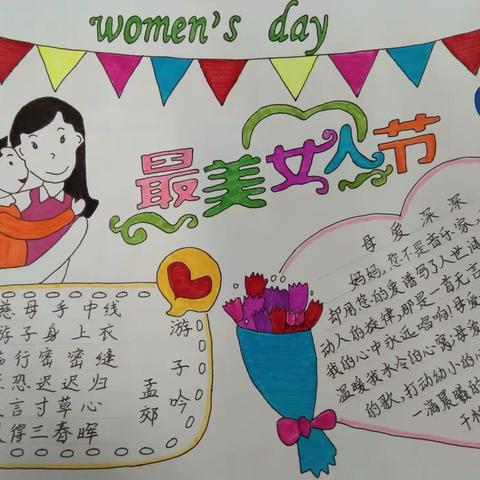 women's day
最美女人节
慈母手中线
游子身上衣
临行密密缝
恐迟迟归
言寸草心
得三春晖
游子吟
孟郊
母爱深深
妈妈,您不是音乐家,
却用您的爱谱写了人世间
动人的旋律,那是一首无言
我的心中永远唱响!母爱
温暖我冰冷的心窝;母爱
的歌,打动幼小的心
一滴晨曦的
千